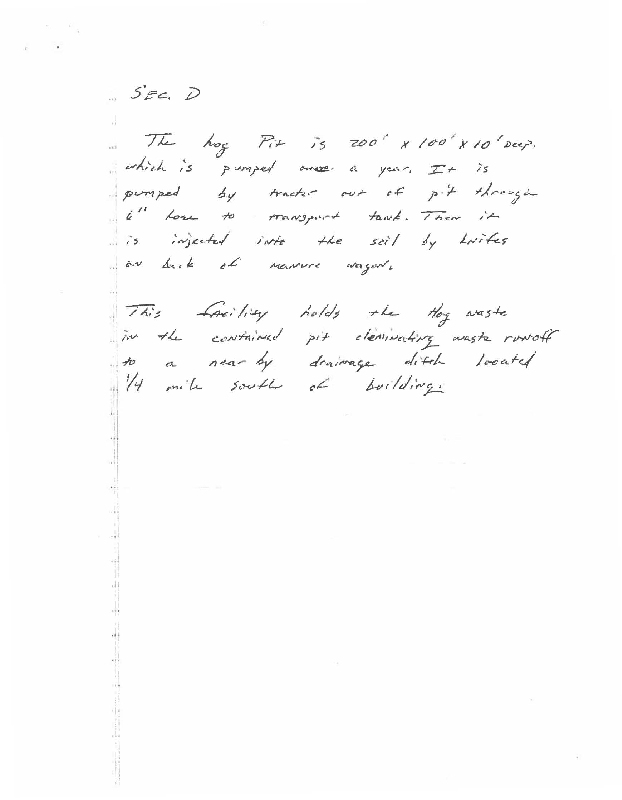 SEC. D
The hog Pit is 200' x 100' x 10' Deep.
which is pumped once a year. It is
pumped by tractor out of pit through
6" hose to transport tank. Then it
is injected into the soil by knifes
on back of manure wagon.
This facility holds the Hog waste
in the contained pit eleminating waste runoff
to a near by drainage ditch located
1/4 mile south of building.